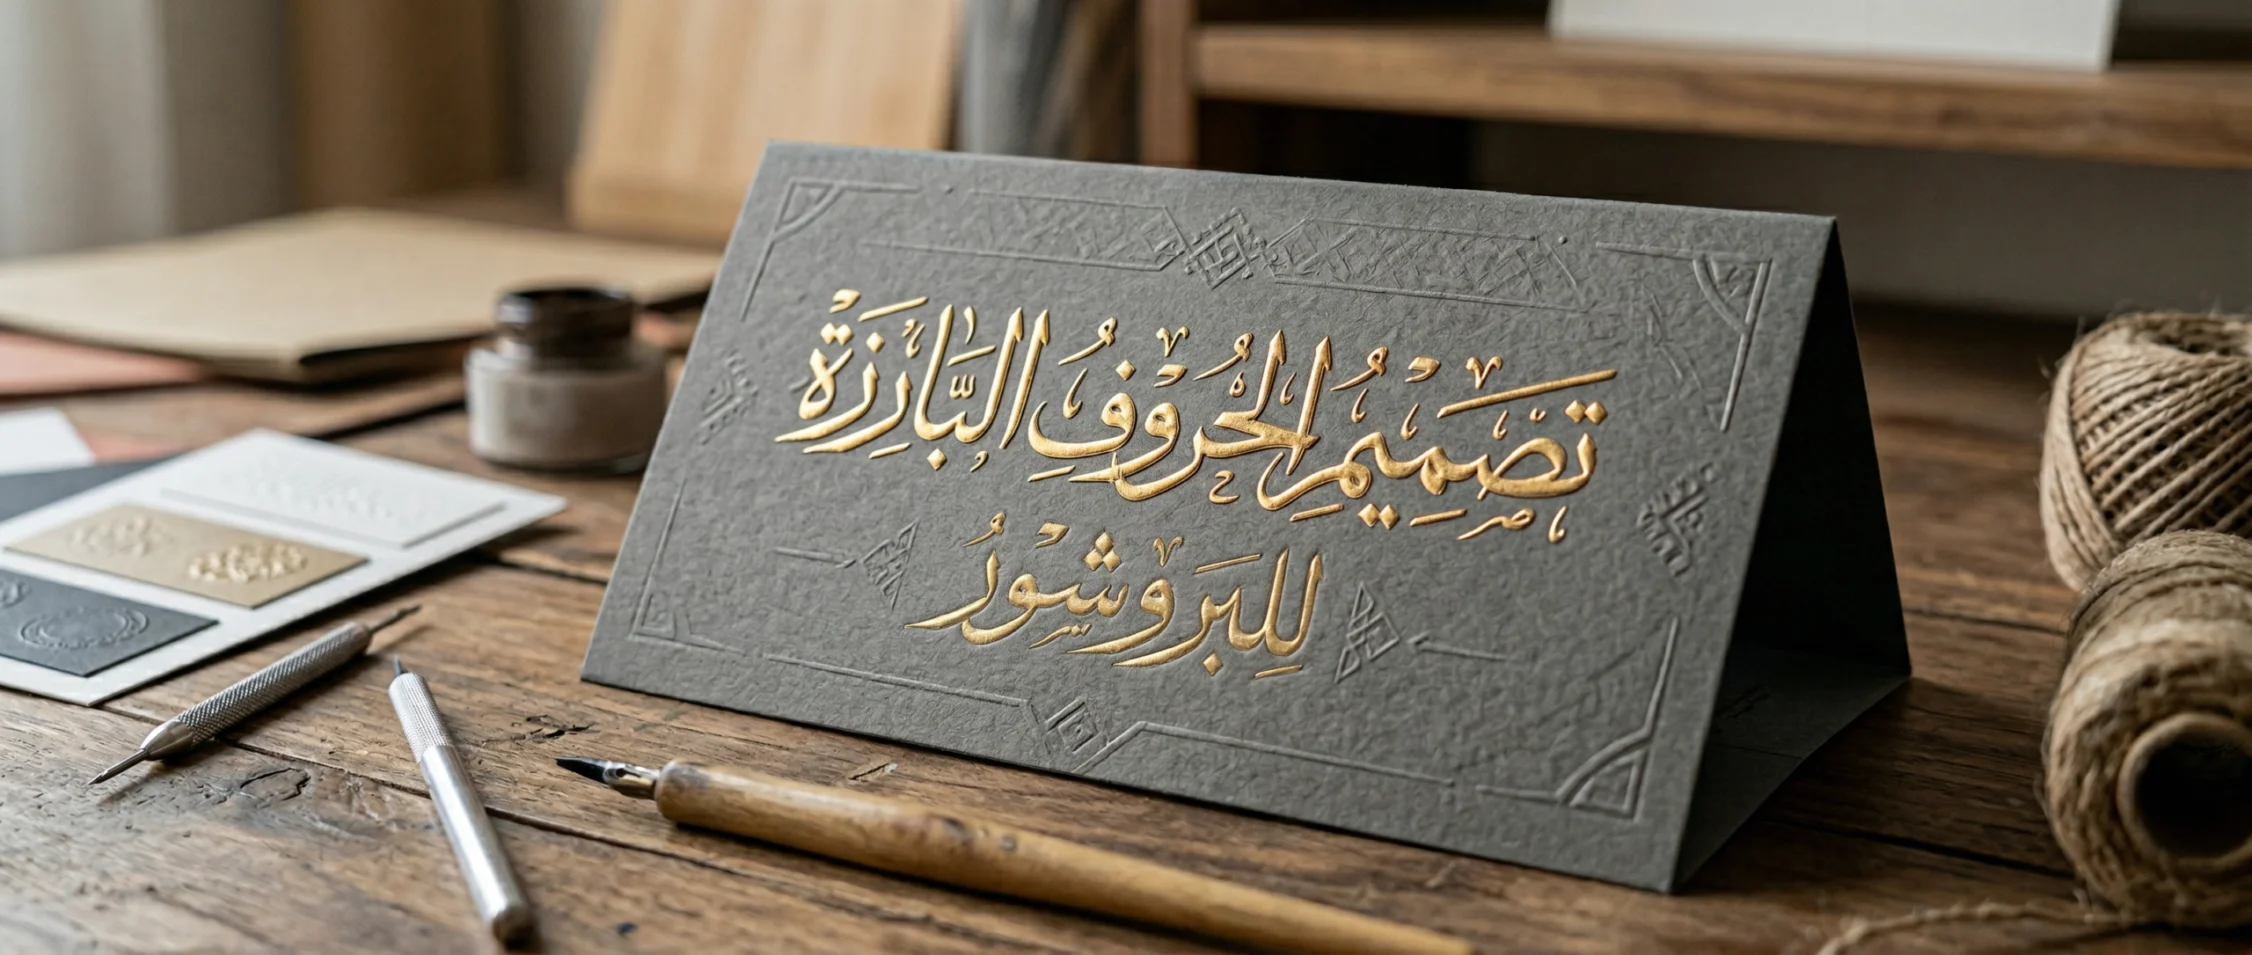 تَصْمِيمُ الحُرُوفِ البَّارِزَةْ
لِلبَروشورُ